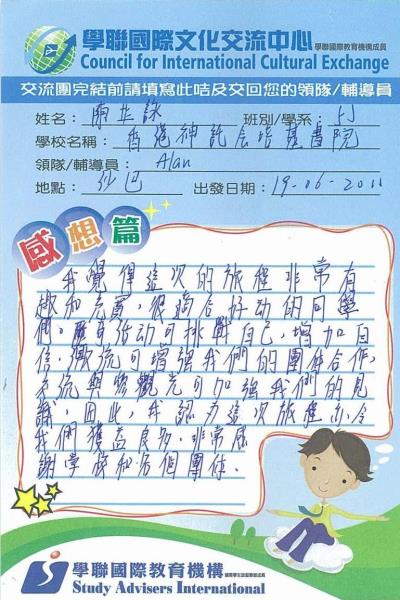 學聯國際文化交流中心 學聯國際教育機構成員
Council for International Cultural Exchange
交流團完結前請填寫此咭及交回您的領隊/輔導員
姓名： 班別/學系： 5J
學校名稱： 香港神託會培基書院
領隊/輔導員： Alan
地點： 沙巴 出發日期： 19-06-2011
感想篇
我覺得這次的旅程非常有
趣和充實，很適合好動的同學
們。歷奇活动可挑戰自己，增加自
信，激流可增強我們的團体合作，
生態與參觀尤可加強我們的見
識，因此，我認为這次旅程令
我們獲益良多，非常感
謝學校和各個團体．
學聯國際教育機構
Study Advisers International